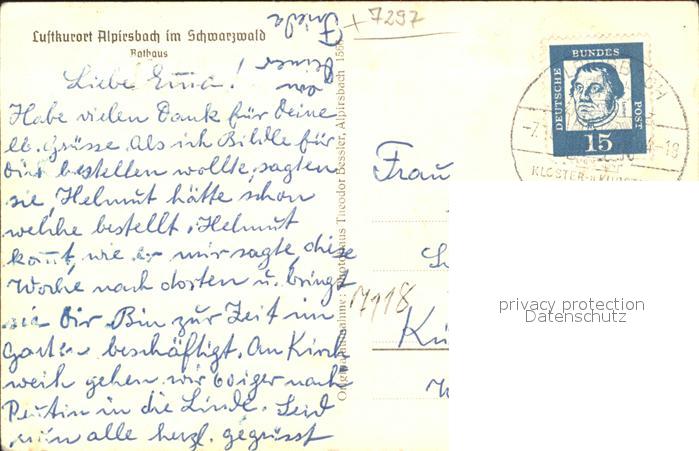 Luftkurort Alpirsbach im Schwarzwald
Rathaus
+ 7297
Liebe Emma!
Habe vielen Dank für Deine
lb. Grüsse. Als ich Bilder für
Dich bestellen wollte, sagten
sie, Helmut hätte schon
welche bestellt. Helmut
kommt, wie er mir sagte, diese
Woche nach dorten u. bringt
sie Dir. Bin zur Zeit im
Garten beschäftigt. An Kirch
weih gehen wir
in die Linde. Seid
nun alle herzl. gegrüsst
von Deiner
Frieda
Originalaufnahme: Photohaus Theodor Bessler, Alpirsbach
Frau
M118
DEUTSCHE
BUNDES
POST
15
KLOSTER- u.
privacy protection
Datenschutz